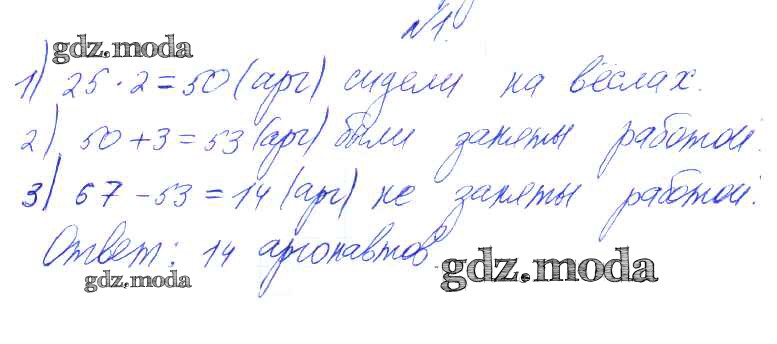 №1.
gdz.moda
1) 25 · 2 = 50 (арг) сидели на вёслах.
2) 50 + 3 = 53 (арг) были заняты работой.
3) 67 - 53 = 14 (арг) не заняты работой.
Ответ: 14 аргонавтов.
gdz.moda
gdz.moda